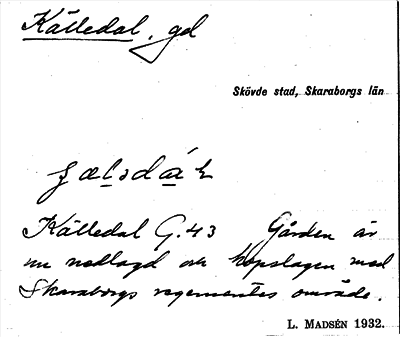 Källedal, gd
Skövde stad, Skaraborgs län
Källedal G.43 Gården är
nu nedlagd och hopslagen med
Skaraborgs regementes område.
L. MADSÉN 1932.